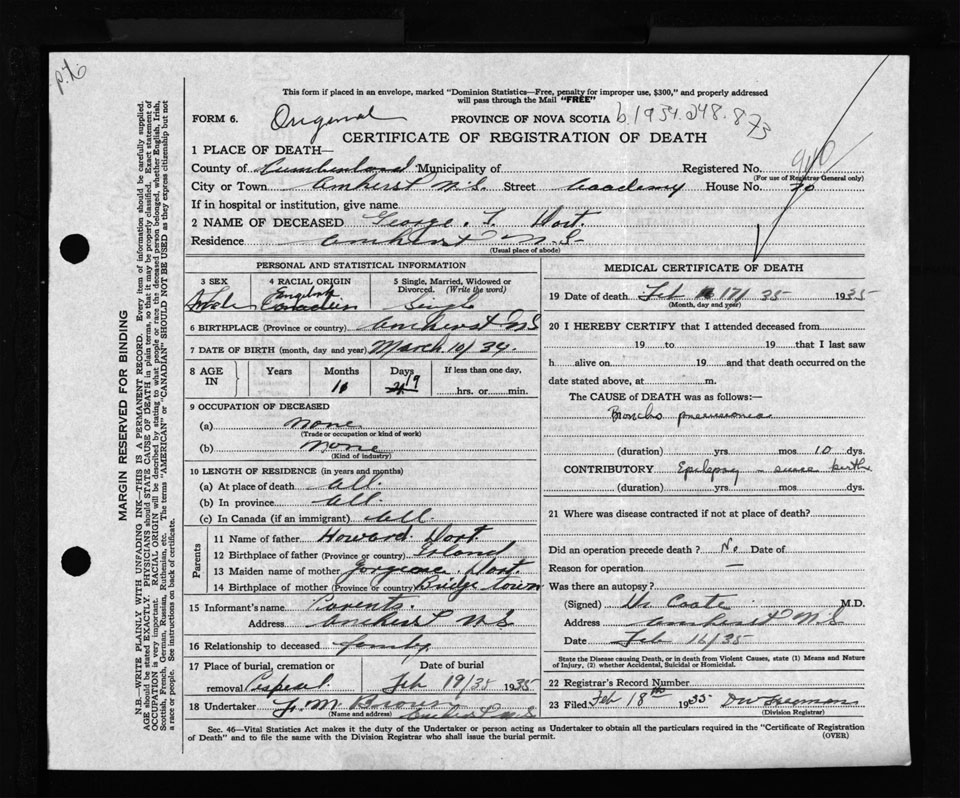 p.t.
This form if placed in an envelope, marked "Dominion Statistics—Free, penalty for improper use, $300," and properly addressed
will pass through the Mail "FREE"
FORM 6. Original PROVINCE OF NOVA SCOTIA b1934.248.873
CERTIFICATE OF REGISTRATION OF DEATH
1 PLACE OF DEATH—
County of Cumberland Municipality of Registered No.
(For use of Registrar General only)
City or Town Amherst N.S. Street Academy House No. 70
If in hospital or institution, give name
2 NAME OF DECEASED George. F. Dort.
Residence Amherst N.S.
(Usual place of abode)
PERSONAL AND STATISTICAL INFORMATION
3 SEX 4 RACIAL ORIGIN 5 Single, Married, Widowed or Divorced. (Write the word)
Male English Canadian Single
6 BIRTHPLACE (Province or country) Amherst N S
7 DATE OF BIRTH (month, day and year) March 10/34.
8 AGE IN Years Months Days If less than one day,
19 hrs. or min.
9 OCCUPATION OF DECEASED
(a) none
(Trade or occupation or kind of work)
(b) none
(Kind of industry)
10 LENGTH OF RESIDENCE (in years and months)
(a) At place of death all.
(b) In province all.
(c) In Canada (if an immigrant) all
Parents
11 Name of father Howard. Dort.
12 Birthplace of father (Province or country) Island
13 Maiden name of mother Dort.
14 Birthplace of mother (Province or country) Bridge town
15 Informant's name Parents.
Address Amherst N.S.
16 Relationship to deceased family
17 Place of burial, cremation or removal Date of burial
Feb 19/35 1935
18 Undertaker F. M. Brown
(Name and address) Amherst N.S
MEDICAL CERTIFICATE OF DEATH
19 Date of death Feb 17/ 35 1935
(Month, day and year)
20 I HEREBY CERTIFY that I attended deceased from
19 to 19 that I last saw
h alive on 19 and that death occurred on the
date stated above, at m.
The CAUSE of DEATH was as follows:—
Broncho pneumonia
(duration) yrs mos 10 dys.
CONTRIBUTORY Epilepsy – since birth
(duration) yrs mos dys.
21 Where was disease contracted if not at place of death?
Did an operation precede death? No Date of
Reason for operation —
Was there an autopsy?
(Signed) Dr Coate M.D.
Address Amherst N S
Date Feb 16/35
State the Disease causing Death, or in death from Violent Causes, state (1) Means and Nature
of Injury, (2) whether Accidental, Suicidal or Homicidal.
22 Registrar's Record Number
23 Filed Feb 18th 1935
(Division Registrar)
Sec. 46—Vital Statistics Act makes it the duty of the Undertaker or person acting as Undertaker to obtain all the particulars required in the "Certificate of Registration
of Death" and to file the same with the Division Registrar who shall issue the burial permit. (OVER)
MARGIN RESERVED FOR BINDING
N.B.—WRITE PLAINLY WITH UNFADING INK—THIS IS A PERMANENT RECORD. Every item of information should be carefully supplied.
AGE should be stated EXACTLY. PHYSICIANS should STATE CAUSE OF DEATH in plain terms, so that it may be properly classified. Exact statement of
OCCUPATION is very important. RACIAL ORIGIN will be described by stating to what people or race the deceased person belonged, whether English, Irish,
Scottish, French, German, Russian, Ruthenian, etc. The terms "AMERICAN" or "CANADIAN" SHOULD NOT BE USED as they express citizenship but not
a race or people. See instructions on back of certificate.